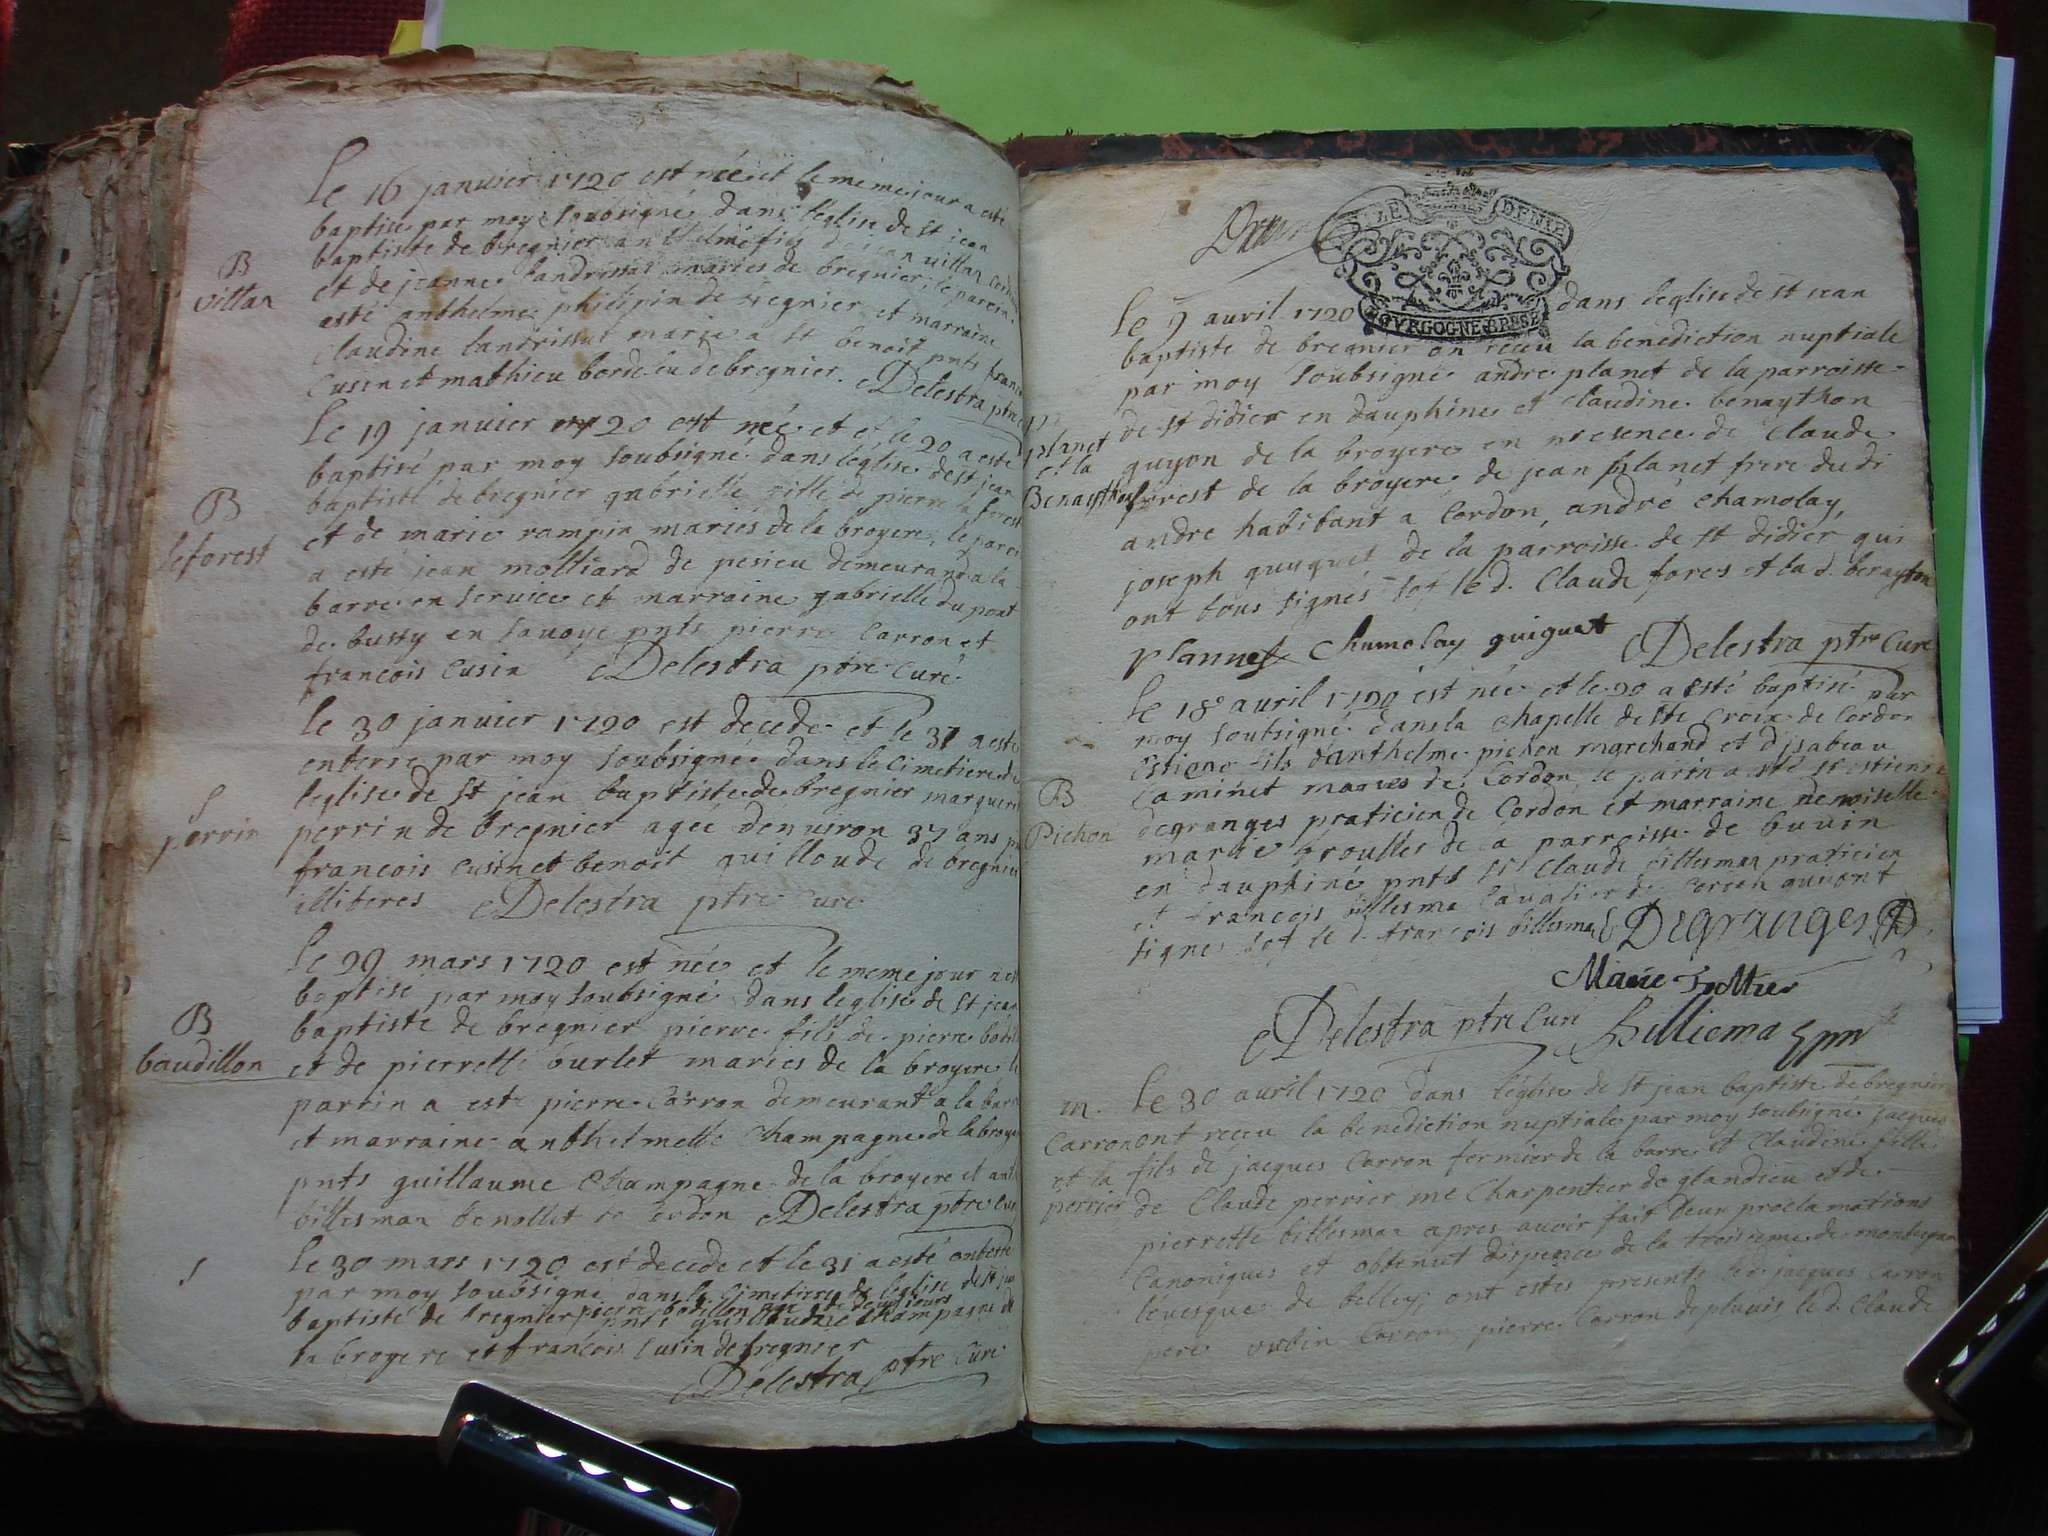 le 16 janvier 1720 est né et le meme jour a esté
baptisé par moy soubsigné dans l'eglise de st jean
baptiste de bregnier anthelme fils de jean villar
B
villar
et de jeanne landrissat mariés de bregnier, le parein
a esté anthelme philipin de bregnier et marraine
Claudine landrissat marie a st benoit pnts francois
Cusin et mathieu bordelin de bregnier. Delestra ptre
le 19 janvier 1720 est née et et le 20 a esté
baptisé par moy soubsigné dans l'eglise de st jean
baptiste de bregnier gabrielle fille de pierre laforest
B
leforest
et de marie rampin mariés de la broyere, le parein
a esté jean molliard de pesieu demeurand a la
barre en service et marraine gabrielle dupont
de bussy en savoye pnts pierre Carron et
francois Cusin Delestra ptre Curé
le 30 janvier 1720 est decede et le 31 a esté
enterre par moy soubsigné dans le Cimetiere de
l'eglise de st jean baptiste de bregnier
S
perrin
perrin de bregnier agée d'environ 37 ans
francois Cusin et benoit guilloude de bregnier
illiteres Delestra ptre Curé
le 29 mars 1720 est née et le meme jour a esté
baptisé par moy soubsigné dans leglise de st jean
baptiste de bregnier pierre fils de pierre
B
baudillon
et de pierrette burlet mariés de la broyere le
parrin a esté pierre Carron demeurant a la barre
et marraine anthelmette Champagne de la broyere
pnts guillaume Champagne de la broyere et
billesmaz de Cordon Delestra ptre Curé
S
le 30 mars 1720 est decede et le 31 a esté enterré
par moy soubsigné dans le Cimetiere de l'eglise de st jean
baptisté de bregnier pierre bodillon agé de deux jours
pnts guillaume Champagne de
la broyere et francois Cusin de bregnier
Delestra ptre Curé
DEUX
BOVRGOGNE BRESSE
le 9 avril 1720 dans leglise de st jean
baptiste de bregnier on receu la benediction nuptiale
par moy soubsigné andre planet de la parroisse
de st didier en dauphiné et Claudine benaython
m
planet
et la
Benaython
guyon de la broyere en presence de Claude
forest de la broyere de jean planet frere du di
andre habitant a Cordon, andré Chamolay,
joseph guiguet de la parroisse de st didier qui
ont tous signés sof le d. Claude fores et la d. benayton
plannet Chumolay guiguet Delestra ptre Curé
le 18 avril 1720 est née et le 20 a esté baptisé par
moy soubsigné dans la Chapelle de ste Croix de Cordon
Estiene fils d'anthelme pichon marchand et d'jsabeau
B
Pichon
Caminet mariés de Cordon le parin a esté sr estienne
degranges praticien de Cordon et marraine demoiselle
marie de la parroisse de buvin
en dauphiné pnts sr Claude billesmaz praticien
et francois billesma Cavalier de Cordon qui ont
signe sof le d. francois billesma Degranges
Marie
Delestra ptre Curé Billiema
m.
Carron
et la
perrier
le 30 avril 1720 dans l'eglise de st jean baptiste de bregnier
ont receu la benediction nuptiale par moy soubsigné jacques
fils de jacques Carron fermier de la barre et Claudine fille
de Claude perrier me Charpentier de glandieu et de
pierrette billesmaz apres avoir fait deux proclamations
Canoniques et obtenut dispence de la troisieme de monseigneur
lévesque de belley, ont estés presents le d. jacques Carron
pere urbin Carron, pierre Carron de pluvis, le d. Claude